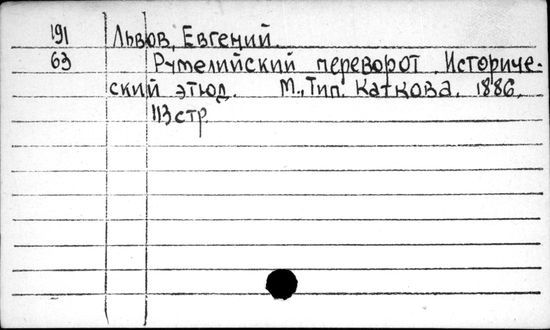 191 Львов, Евгений.
63 Румелийский переворот. Историче-
ский этюд. М., Тип. Каткова. 1886.
113 стр